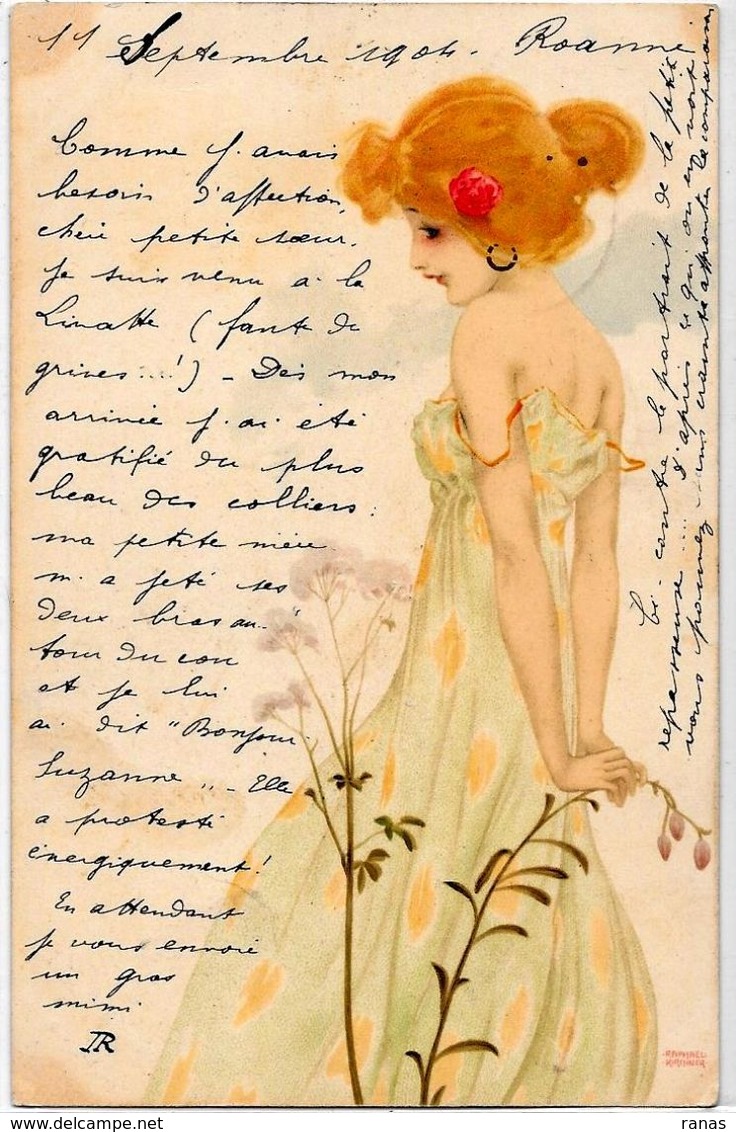 11 Septembre 1904. Roanne
Comme j'avais
besoin d'affection,
chère petite sœur.
Je suis venu à la
Livatte (faute de
grives...!) - Dès mon
arrivée j'ai été
gratifié du plus
beau des colliers:
ma petite nièce
m'a jeté ses
deux bras au-
tour du cou
et je lui
ai dit "Bonjour
Suzanne" - Elle
a protesté
énergiquement!
En attendant
je vous envoie
un gros
mimi
R
Ci-contre le portrait de la petite
repasseuse.... d'après ce qu'on en voit
vous pouvez sans crainte affronter la comparaison
RAPHAEL
KIRCHNER
ranas